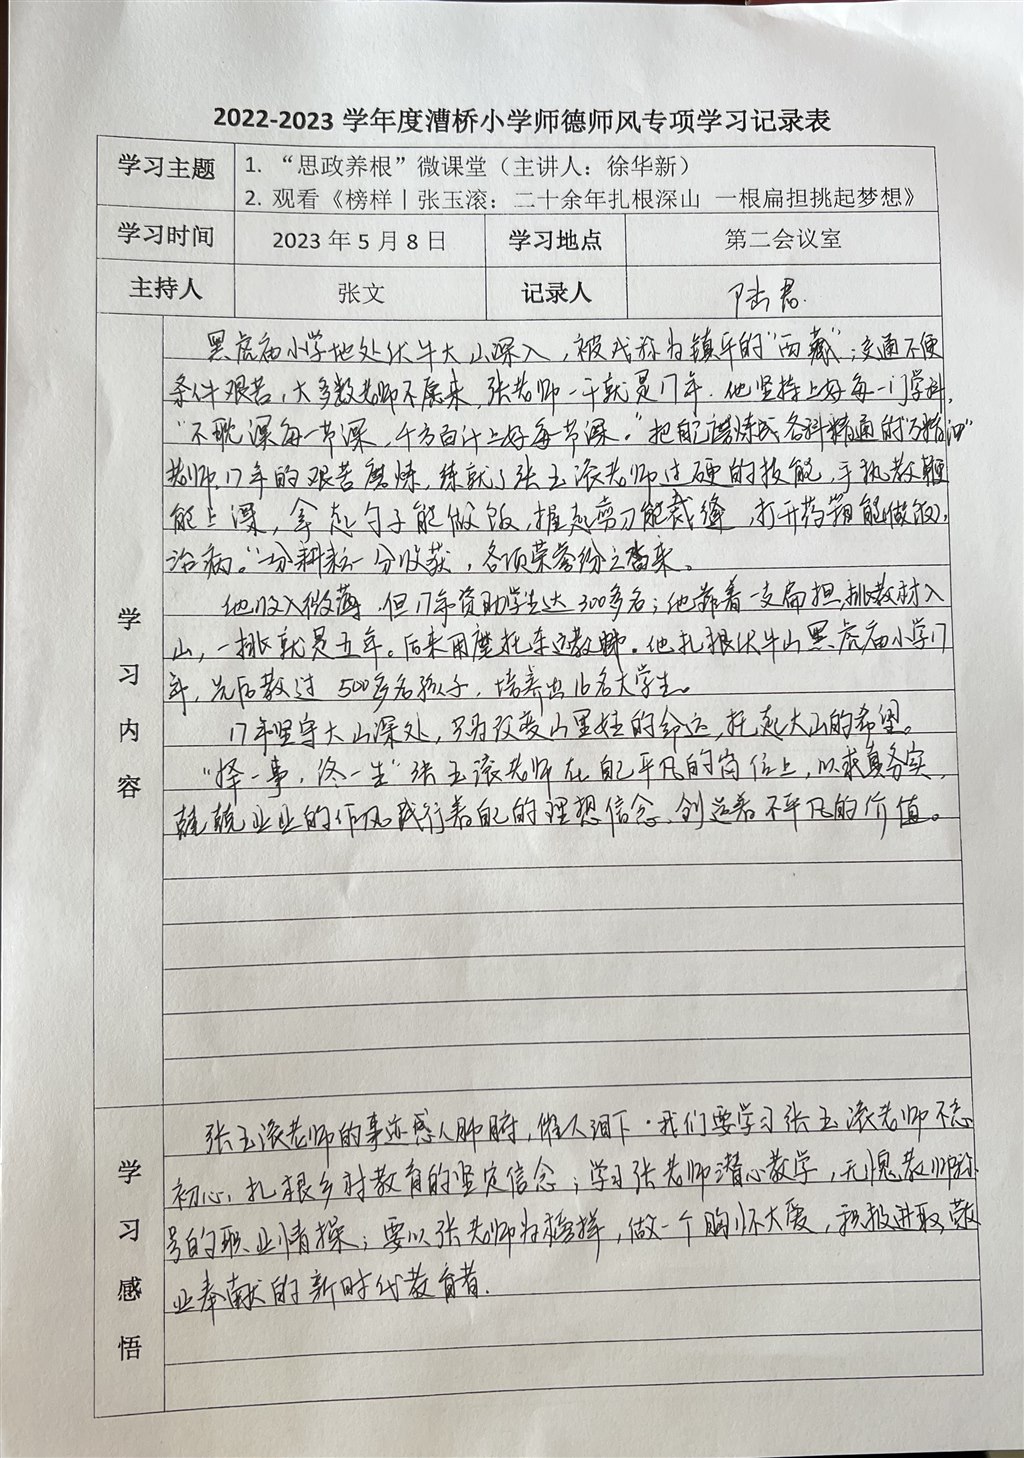 2022-2023 学年度漕桥小学师德师风专项学习记录表
学习主题
1. “思政养根”微课堂（主讲人：徐华新）
2. 观看《榜样丨张玉滚：二十余年扎根深山 一根扁担挑起梦想》
学习时间 2023 年 5 月 8 日 学习地点 第二会议室
主持人 张文 记录人 陆君.
学习内容
黑虎庙小学地处伏牛大山深入，被戏称为镇平的“西藏”；交通不便
条件艰苦，大多数老师不愿来，张老师一干就是17年．他坚持上好每一门学科，
“不耽误每一节课，千方百计上好每节课。”把自己磨炼成各科精通的“万精油”
老师.17年的艰苦磨炼，练就了张玉滚老师过硬的技能，手执教鞭
能上课，拿起勺子能做饭，握起剪刀能裁缝，打开药箱能
治病。“一分耕耘一分收获，各项荣誉纷之沓来。
他收入微薄．但17年资助学生达300多名；他靠着一支扁担，挑教材入
山，一挑就是五年。后来用摩托车运教 。他扎根伏牛山黑虎庙小学17
年，先后教过500多名孩子，培养出16名大学生。
17年坚守大山深处，只为改变山里娃的命运，托起大山的希望。
“择一事，终一生”张玉滚老师在自己平凡的岗位上，以求真务实，
兢兢业业的作风践行着自己的理想信念．创造着不平凡的价值。
学习感悟
张玉滚老师的事迹感人肺腑，催人泪下．我们要学习张玉滚老师不忘
初心，扎根乡村教育的坚定信念；学习张老师潜心教学，无愧教师称
号的职业情操；要以张老师为榜样，做一个胸怀大爱，积极进取，敬
业奉献的新时代教育者．